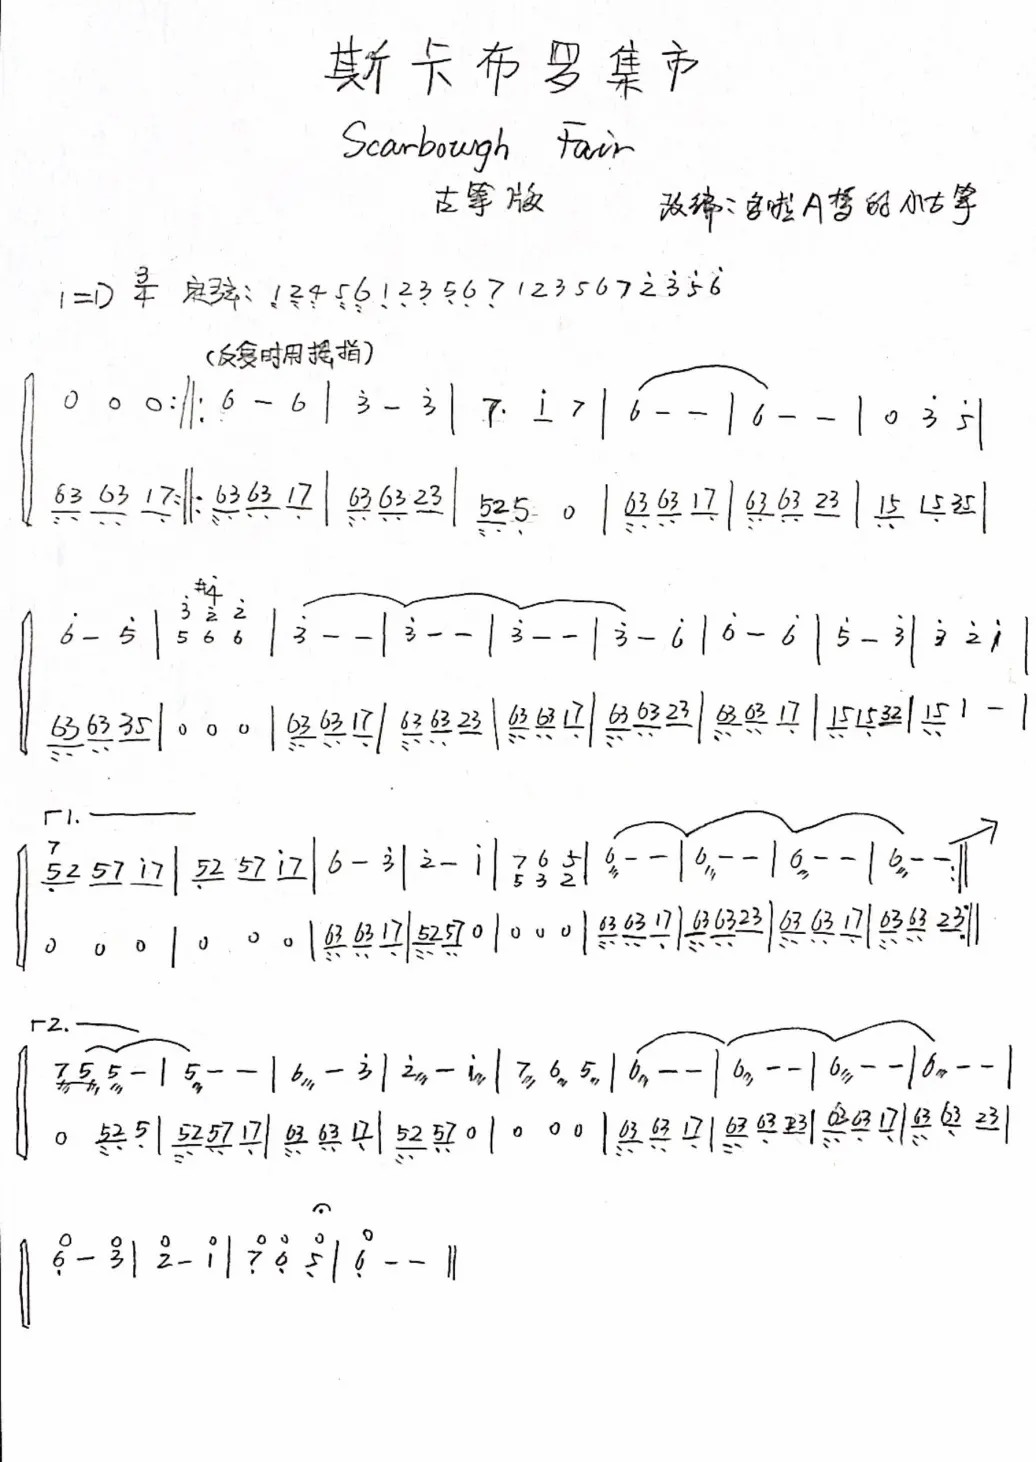 斯卡布罗集市
Scarbough Fair
古筝版 改编：宫啦A哲的小古筝
1=D 3/4 定弦：1 2 4 5 6 1 2 3 5 6 7 1 2 3 5 6 7 2 3 5 6
（反复时用摇指）
0 0 0 :||: 6 - 6 | 3 - 3 | 7. 1 7 | 6 - - | 6 - - | 0 3 5 |
63 63 17 :||: 63 63 17 | 63 63 23 | 52 5 0 | 63 63 17 | 63 63 23 | 15 15 35 |
#4
3 2 2
6 - 5 | 5 6 6 | 3 - - | 3 - - | 3 - - | 3 - 6 | 6 - 6 | 5 - 3 | 3 2 1 |
63 63 35 | 0 0 0 | 63 63 17 | 63 63 23 | 63 63 17 | 63 63 23 | 63 63 17 | 15 15 32 | 15 1 - |
┌1.
7
52 57 17 | 52 57 17 | 6 - 3 | 2 - 1 | 7 6 5 | 6 - - | 6 - - | 6 - - | 6 - - :||
5 3 2
0 0 0 | 0 0 0 | 63 63 17 | 52 57 0 | 0 0 0 | 63 63 17 | 63 63 23 | 63 63 17 | 63 63 23 :||
┌2.
7 5 5 - | 5 - - | 6 - 3 | 2 - 1 | 7 6 5 | 6 - - | 6 - - | 6 - - | 6 - - |
0 52 5 | 52 57 17 | 63 63 17 | 52 57 0 | 0 0 0 | 63 63 17 | 63 63 23 | 63 63 17 | 63 63 23 |
o o o o o o o o
6 - 3 | 2 - 1 | 7 6 5 | 6 - - ||